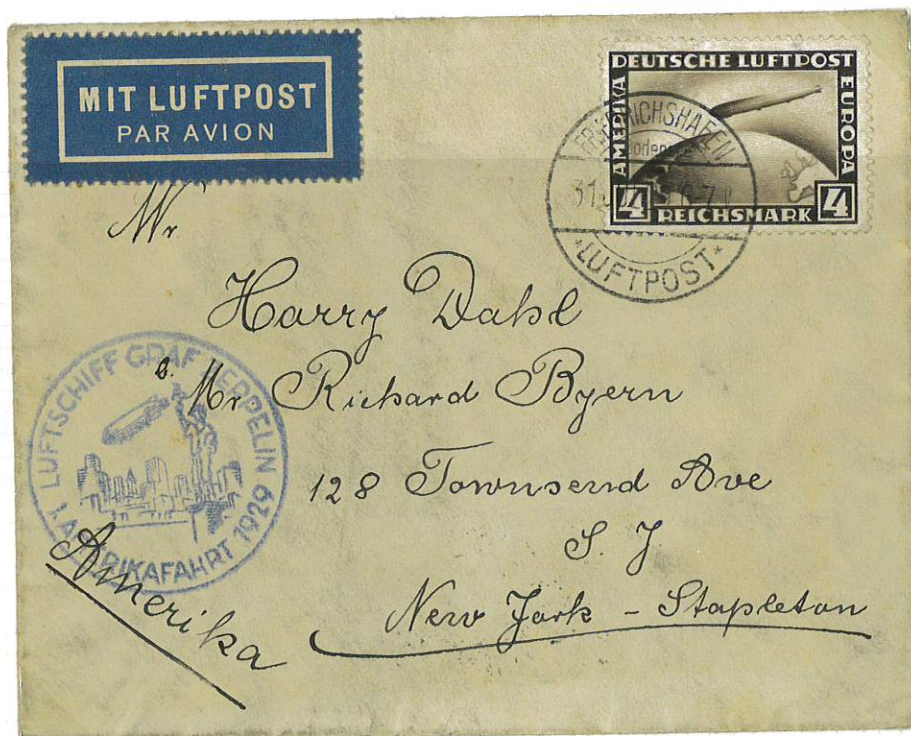 MIT LUFTPOST
PAR AVION
DEUTSCHE LUFTPOST
AMERIKA
EUROPA
4 REICHSMARK 4
FRIEDRICHSHAFEN
LUFTPOST
Mr
Harry Dahl
Mr Richard Byern
128 Townsend Ave
S. J
New York - Stapleton
Amerika
LUFTSCHIFF GRAF ZEPPELIN
1. AMERIKAFAHRT 1929